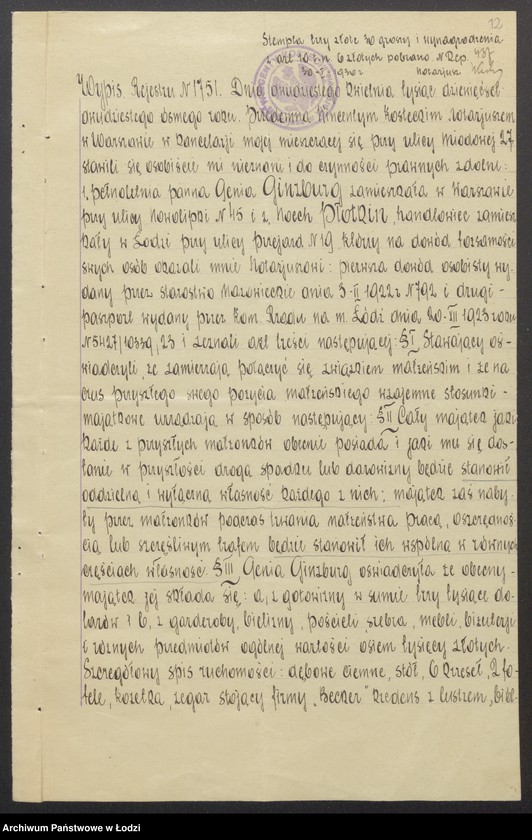 12
Stempla trzy złote 30 groszy i wynagrodzenia
6 złotych pobrano N Rep. 437
30-I-1930 r notarjusz
Wypis. Rejestru N 1751. Dnia dwudziestego kwietnia tysiąc dziewięćset
dwudziestego ósmego roku. Przedemną Wincentym Kosteckim Notarjuszem
w Warszawie w kancelarji mojej mieszczącej się przy ulicy Miodowej 27
stawili się osobiście mi nieznani i do czynności prawnych zdolni:
1, pełnoletnia panna Genia Ginzburg zamieszkała w Warszawie
przy ulicy Nowolipki N 45 i 2, Noech Płotkin, handlowiec zamiesz
kały w Łodzi przy ulicy Przejazd N 19, którzy na dowód tożsamości
swych osób okazali mnie Notarjuszowi: pierwsza dowód osobisty wy-
dany przez starostwo Mazowieckie dnia 3-II 1922 r N 792 i drugi -
paszport wydany przez Kom. Rządu na m. Łódź dnia 20-III 1923 roku
N 5427/10339/23 i zeznali akt treści następującej: § I Stawający oś-
wiadczyli, że zamierzają połączyć się związkiem małżeńskim i że na
czas przyszłego swego pożycia małżeńskiego wzajemne stosunki -
majątkowe urządzają w sposób następujący: § II Cały majątek jaki
każde z przyszłych małżonków obecnie posiada i jaki mu się dos-
tanie w przyszłości drogą spadku lub darowizny będzie stanowił
oddzielną i wyłączną własność każdego z nich; majątek zaś naby-
ty przez małżonków podczas trwania małżeństwa pracą, oszczędnoś-
cią lub szczęśliwym trafem będzie stanowił ich wspólną w równych
częściach własność. § III Genia Ginzburg oświadczyła że obecny -
majątek jej składa się: a, z gotowizny w sumie trzy tysiące do-
larów i b, z garderoby, bielizny, pościeli, srebra, mebli, biżuterji
i różnych przedmiotów ogólnej wartości osiem tysięcy złotych.
Szczegółowy spis ruchomości: dębowe ciemne, stół, 6 krzeseł, 2 fo-
tele, kozetka, zegar stojący firmy „Becker" kredens z lustrem, bibl-
Archiwum Państwowe w Łodzi